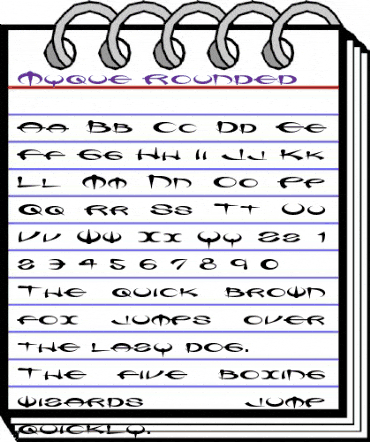 Myque Rounded
Aa Bb Cc Dd Ee
Ff Gg Hh Ii Jj Kk
Ll Mm Nn Oo Pp
Qq Rr Ss Tt Uu
Vv Ww Xx Yy Zz 1
2 3 4 5 6 7 8 9 0
The quick brown
fox jumps over
the lazy dog.
The five boxing
wizards jump
quickly.